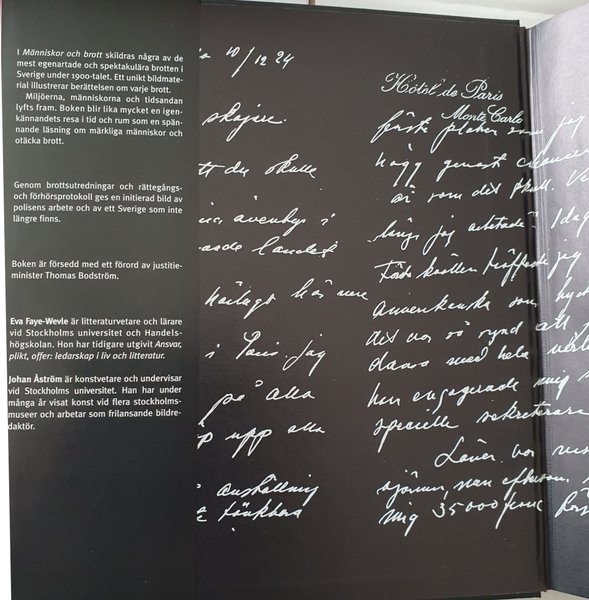 I Människor och brott skildras några av de
mest egenartade och spektakulära brotten i
Sverige under 1900-talet. Ett unikt bildmate-
rial illustrerar berättelsen om varje brott.
Miljöerna, människorna och tidsandan
lyfts fram. Boken blir lika mycket en igen-
kännandets resa i tid och rum som en spän-
nande läsning om märkliga människor och
otäcka brott.
Genom brottsutredningar och rättegångs-
och förhörsprotokoll ges en initierad bild av
polisens arbete och av ett Sverige som inte
längre finns.
Boken är försedd med ett förord av justitie-
minister Thomas Bodström.
Eva Faye-Wevle är litteraturvetare och lärare
vid Stockholms universitet och Handels-
högskolan. Hon har tidigare utgivit Ansvar,
plikt, offer: ledarskap i liv och litteratur.
Johan Åström är konstvetare och undervisar
vid Stockholms universitet. Han har under
många år visat konst vid flera stockholms-
museer och arbetar som frilansande bildre-
daktör.
10/12 24
skojare.
du skulle
äventyr i
landest
härligt här nere
i Paris jag
på alla
upp alla
anställning
tänkbara
Hôtel de Paris
Monte Carlo
första platsen som jag
genast
som det skull.
länge jag arbetade? Idag
kvällen träffade jag
amerikanska som
det var så synd att
dansa med hela
hon engagerade mig
speciella sekreterare
var
efter
mig 35000 franc